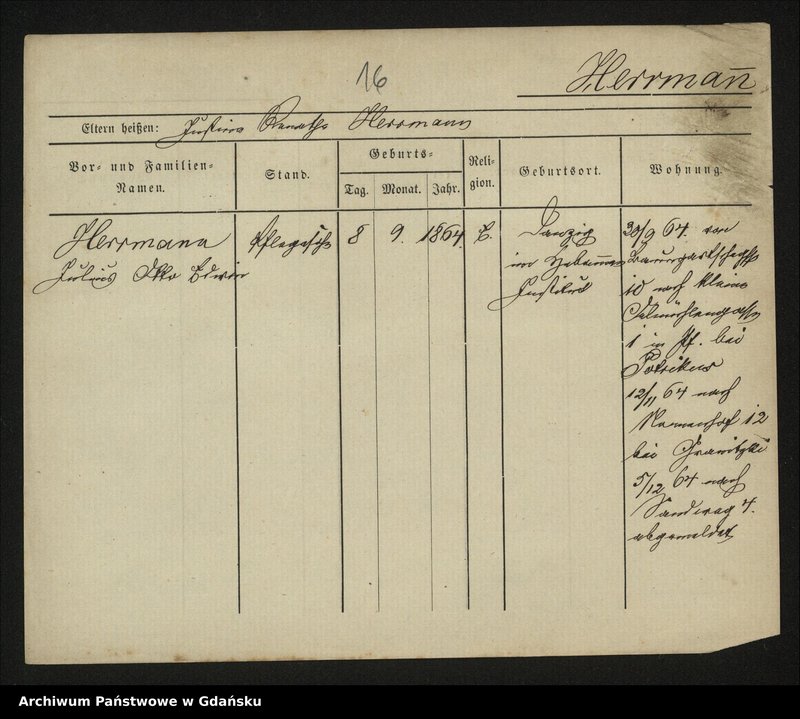 16
Herrmann
Eltern heißen: Justine Renate Herrmann
Vor- und Familien-
Namen.
Stand.
Geburts-
Tag.
Monat.
Jahr.
Reli-
gion.
Geburtsort.
Wohnung.
Herrmann
Julius Otto Edwin
8
9.
1864.
E.
Danzig
im Hebammen
Institut
30/9 64. von
10 nach kleine
Oelmühlengasse
1 in Pf. bei
12/11 64 nach
Nonnenhof 12
bei
5/12 64 nach
Sandweg 4.
abgemeldet
Archiwum Państwowe w Gdańsku